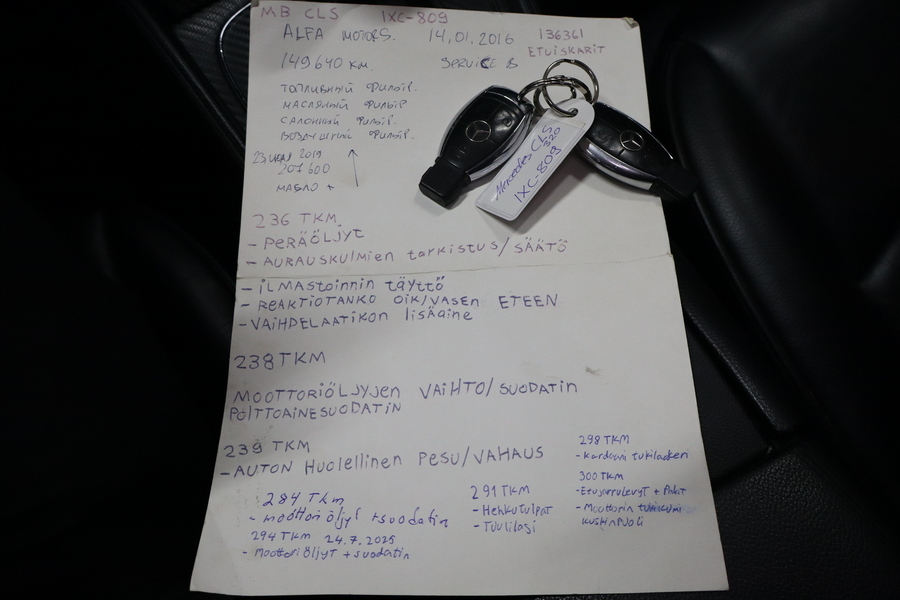 MB CLS IXC-809
ALFA MOTORS. 14,01.2016 136361
ETUISKARIT
149640 KM. SERVICE B
ТОПЛИВНЫЙ ФИЛЬТР.
МАСЛЯНЫЙ ФИЛЬТР
САЛОННЫЙ ФИЛЬТР.
ВОЗДУШНЫЙ ФИЛЬТР.
2019
201 600
МАСЛО +
Mercedes CLS
320
IXC-809
236 TKM
- PERÄÖLJYT
- AURAUSKULMIEN tarkistus/SÄÄTÖ
- iLMAStoinnin täyttö
- REAKTIOTANKO OIK/VASEN ETEEN
- VAIHDELAATIKON lisäaine
238 TKM
MOOTTORIÖLJYJEN VAIHTO/SUODATIN
POLTTOAINESUODATIN
239 TKM
- AUTON HUOLELLINEN PESU/VAHAUS
284 Tkm
- moottori öljyt + suodatin
294 TKM 24.7.2025
- Moottoriöljyt + suodatin
291 TKM
- Hehkutulpat
- Tuulilasi
298 TKM
- Kardaani tukilaakeri
300 TKM
- Etujarrulevyt + Palat
- Moottorin tukikumi
kuskinpuoli